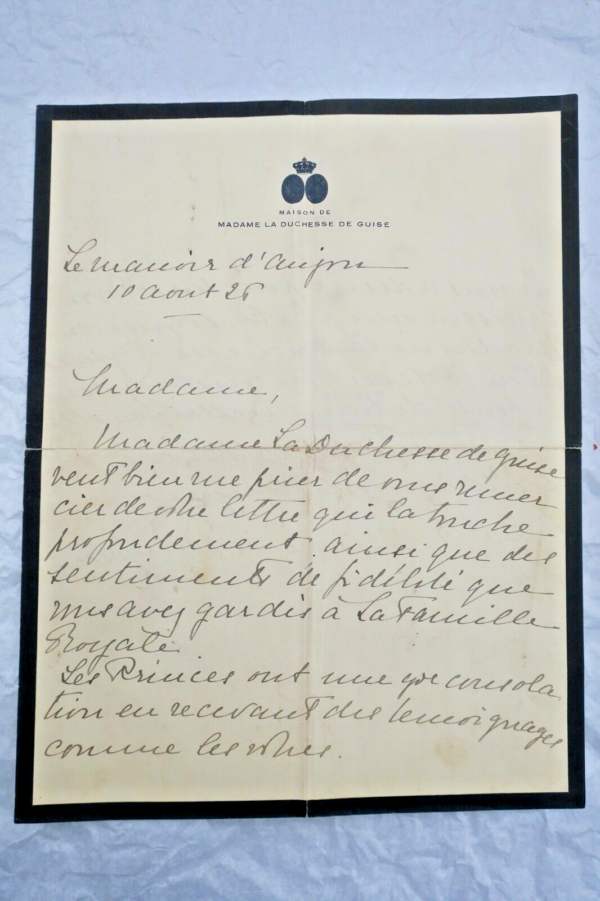 MAISON DE
MADAME LA DUCHESSE DE GUISE
Le Manoir d'Anjou
10 Aout 26
Madame,
Madame La Duchesse de Guise
veut bien me prier de vous remer
cier de votre lettre qui la touche
profondement ainsi que des
sentiments de fidélité que
vous avez gardés à La Famille
Royale
Les Princes ont une gde consola
tion en recevant des temoignages
comme les votres.